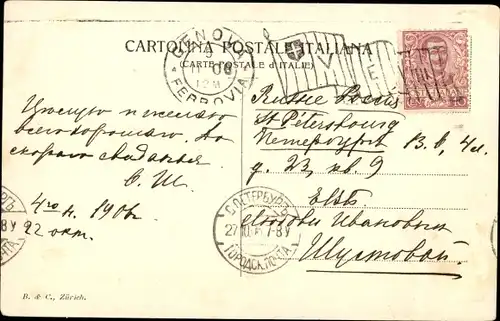 CARTOLINA POSTALE ITALIANA
(CARTE POSTALE d'ITALIE)
GENOVA
FERROVIA
Цѣлую и желаю
всего хорошаго. До
скораго свиданья
С. Ш.
4го н. 1906
22 окт.
Russie Россія
St Pétersbourg
Петербургъ В. О., 4 л.
д. 23, кв. 9
ЕВБ
Ивановны
Шустовой.
С.ПЕТЕРБУРГЪ
27 10 7-8У
ГОРОДСК. ПОЧТА
B. & C., Zürich.